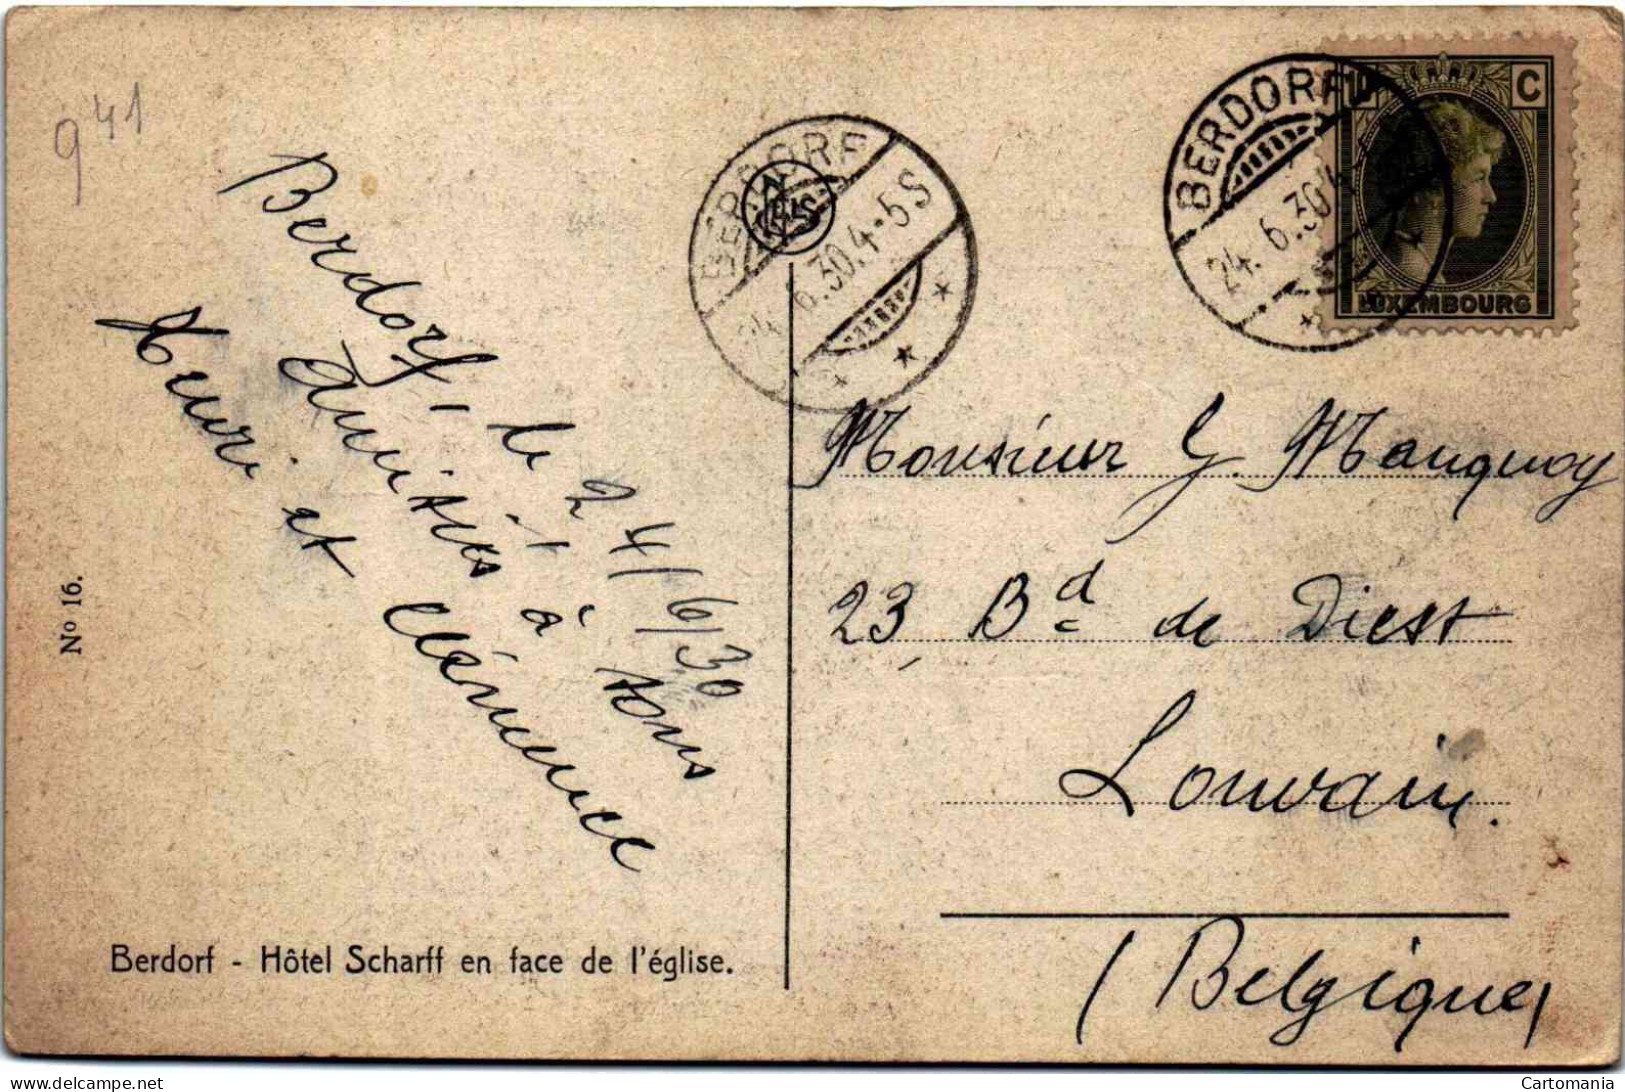 941
Berdorf, le 24/6/30
Amitiés à tous
Henri et Clémence
No 16.
Berdorf - Hôtel Scharff en face de l'église.
NELS
BERDORF
24.6.30.4-5S
BERDORF
24.6.30.4
10 C
LUXEMBOURG
Monsieur G. Manquoy
23 Bd de Diest
Louvain.
(Belgique)
Cartomania